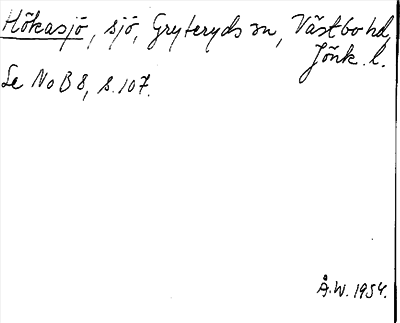 Hökasjö, sjö, Gryteryds sn, Västbo hd,
Jönk. l.
Se NoB 8, s. 107.
Å.W. 1954.